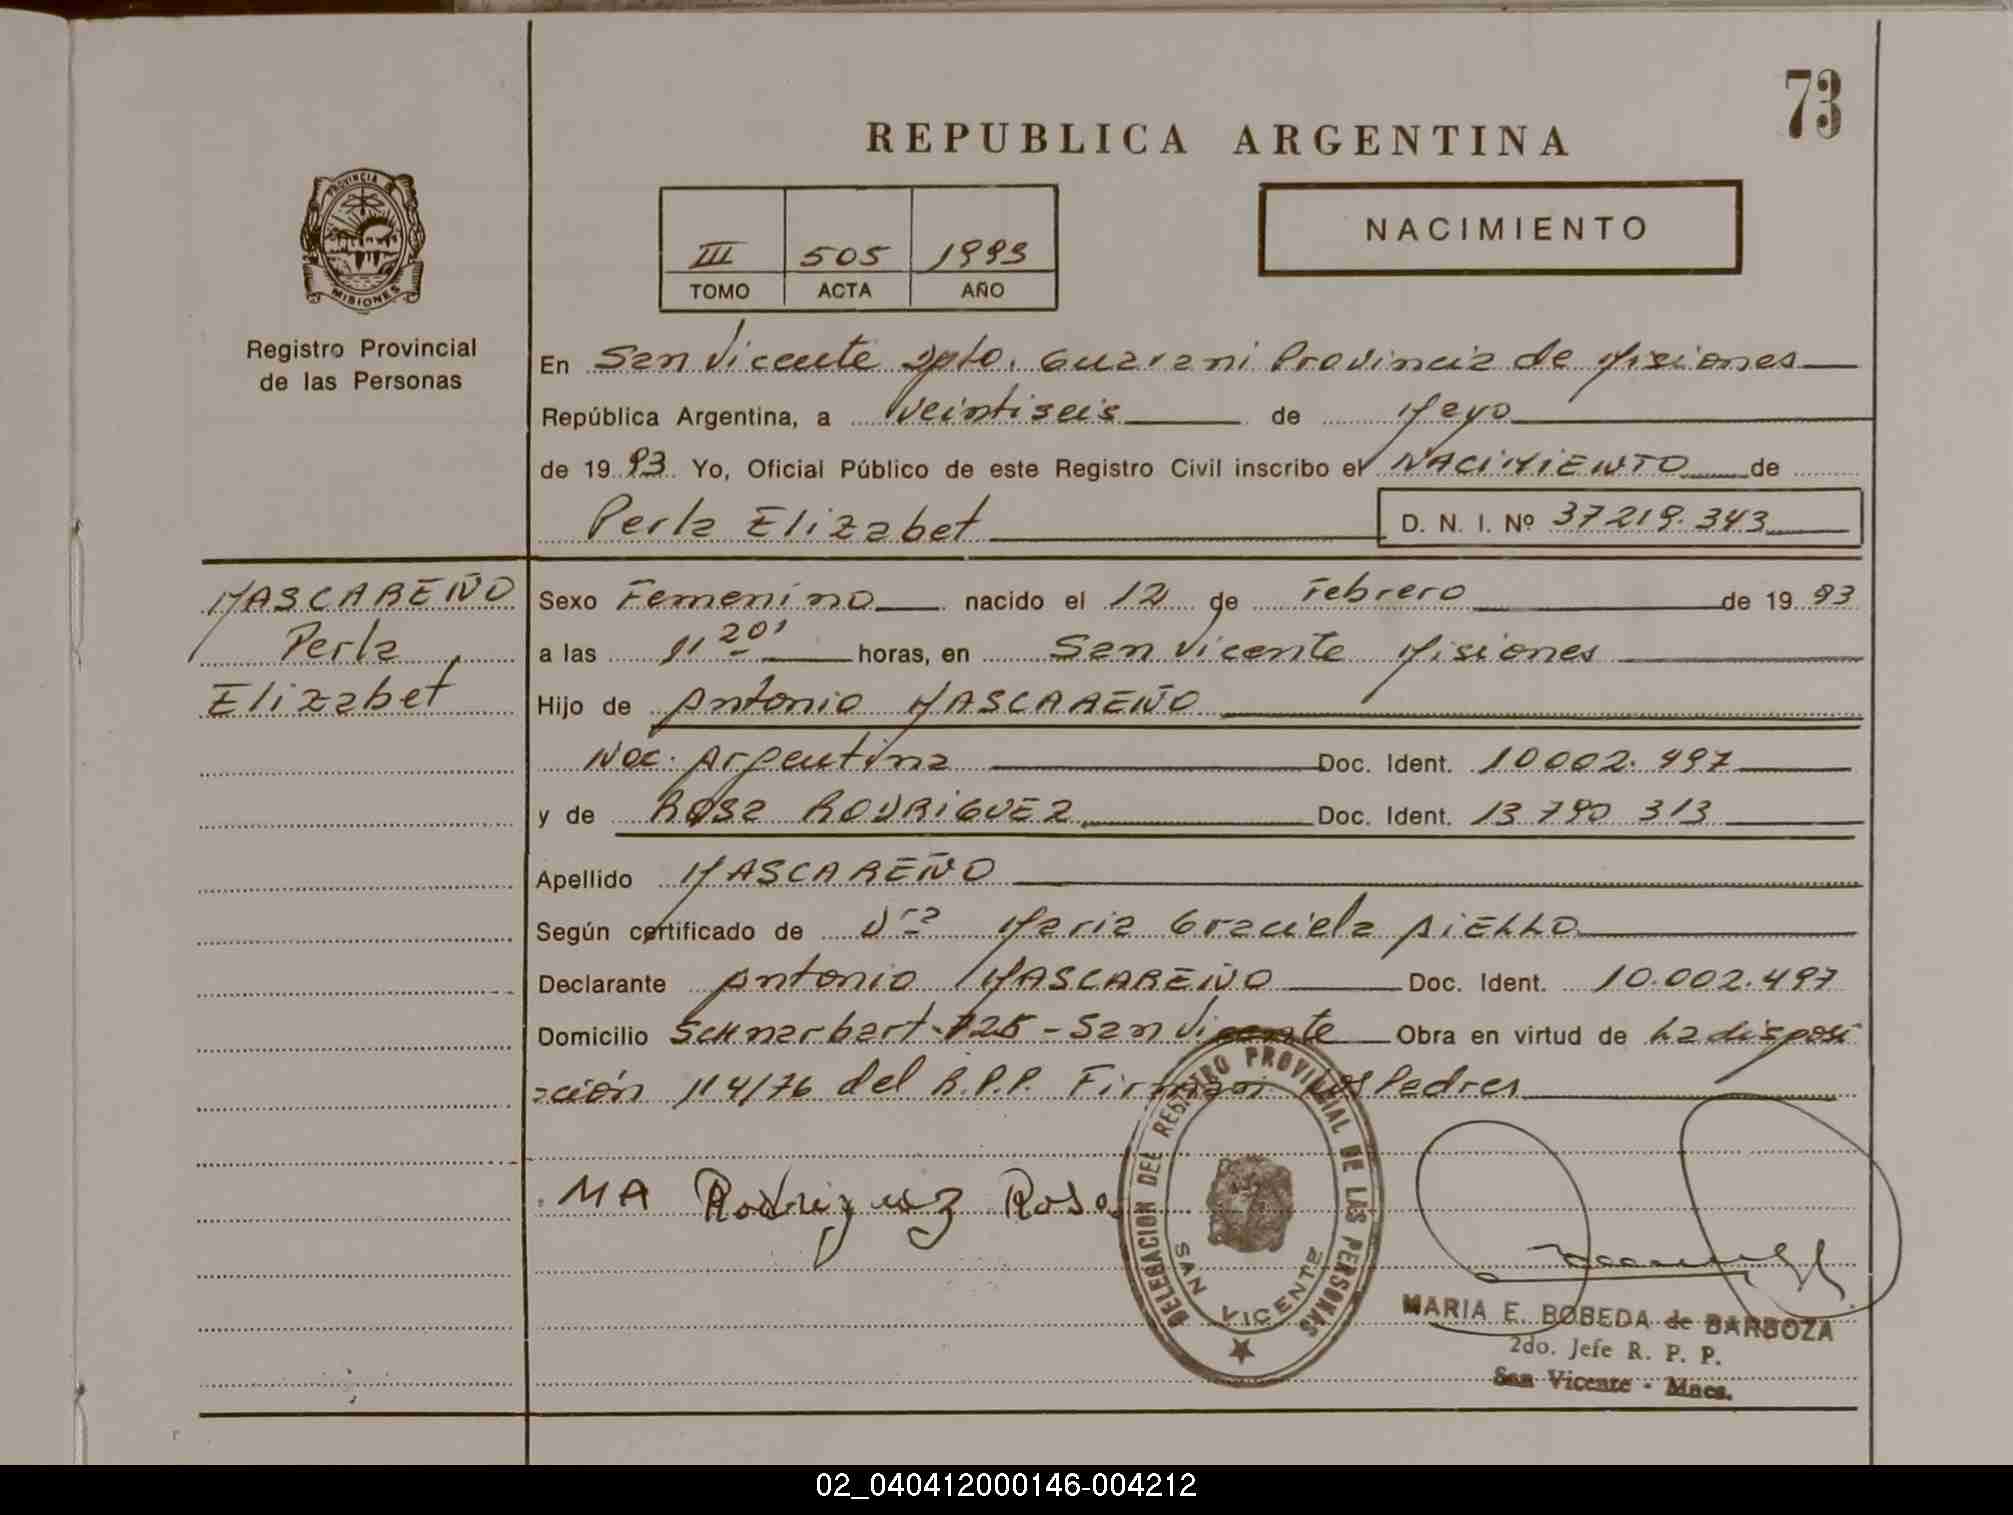 73
REPUBLICA ARGENTINA
PROVINCIA DE
MISIONES
NACIMIENTO
III 505 1993
TOMO ACTA AÑO
Registro Provincial
de las Personas
En San Vicente Dpto. Guarani Provincia de Misiones
República Argentina, a Veintiseis de Mayo
de 19 93 Yo, Oficial Público de este Registro Civil inscribo el NACIMIENTO de
Perla Elizabet D. N. I. Nº 37219.343
MASCAREÑO
Perla
Elizabet
Sexo Femenino nacido el 12 de Febrero de 19 93
a las 11 20' horas, en San Vicente Misiones
Hijo de Antonio MASCAREÑO
Nac. Argentina Doc. Ident. 10002.497
y de Rosa RODRIGUEZ Doc. Ident. 13 790 313
Apellido MASCAREÑO
Según certificado de Dra Maria Graciela AIELLO
Declarante Antonio MASCAREÑO Doc. Ident. 10.002.497
Domicilio San Vicente Obra en virtud de La disposi
ción 114/76 del R.P.P. Firman los Padres
MA Rodriguez Rosa
DELEGACION DEL REGISTRO PROVINCIAL DE LAS PERSONAS
SAN VICENTE
MARIA E. BOBEDA de BARBOZA
2do. Jefe R. P. P.
San Vicente - Mnes.
02_040412000146-004212